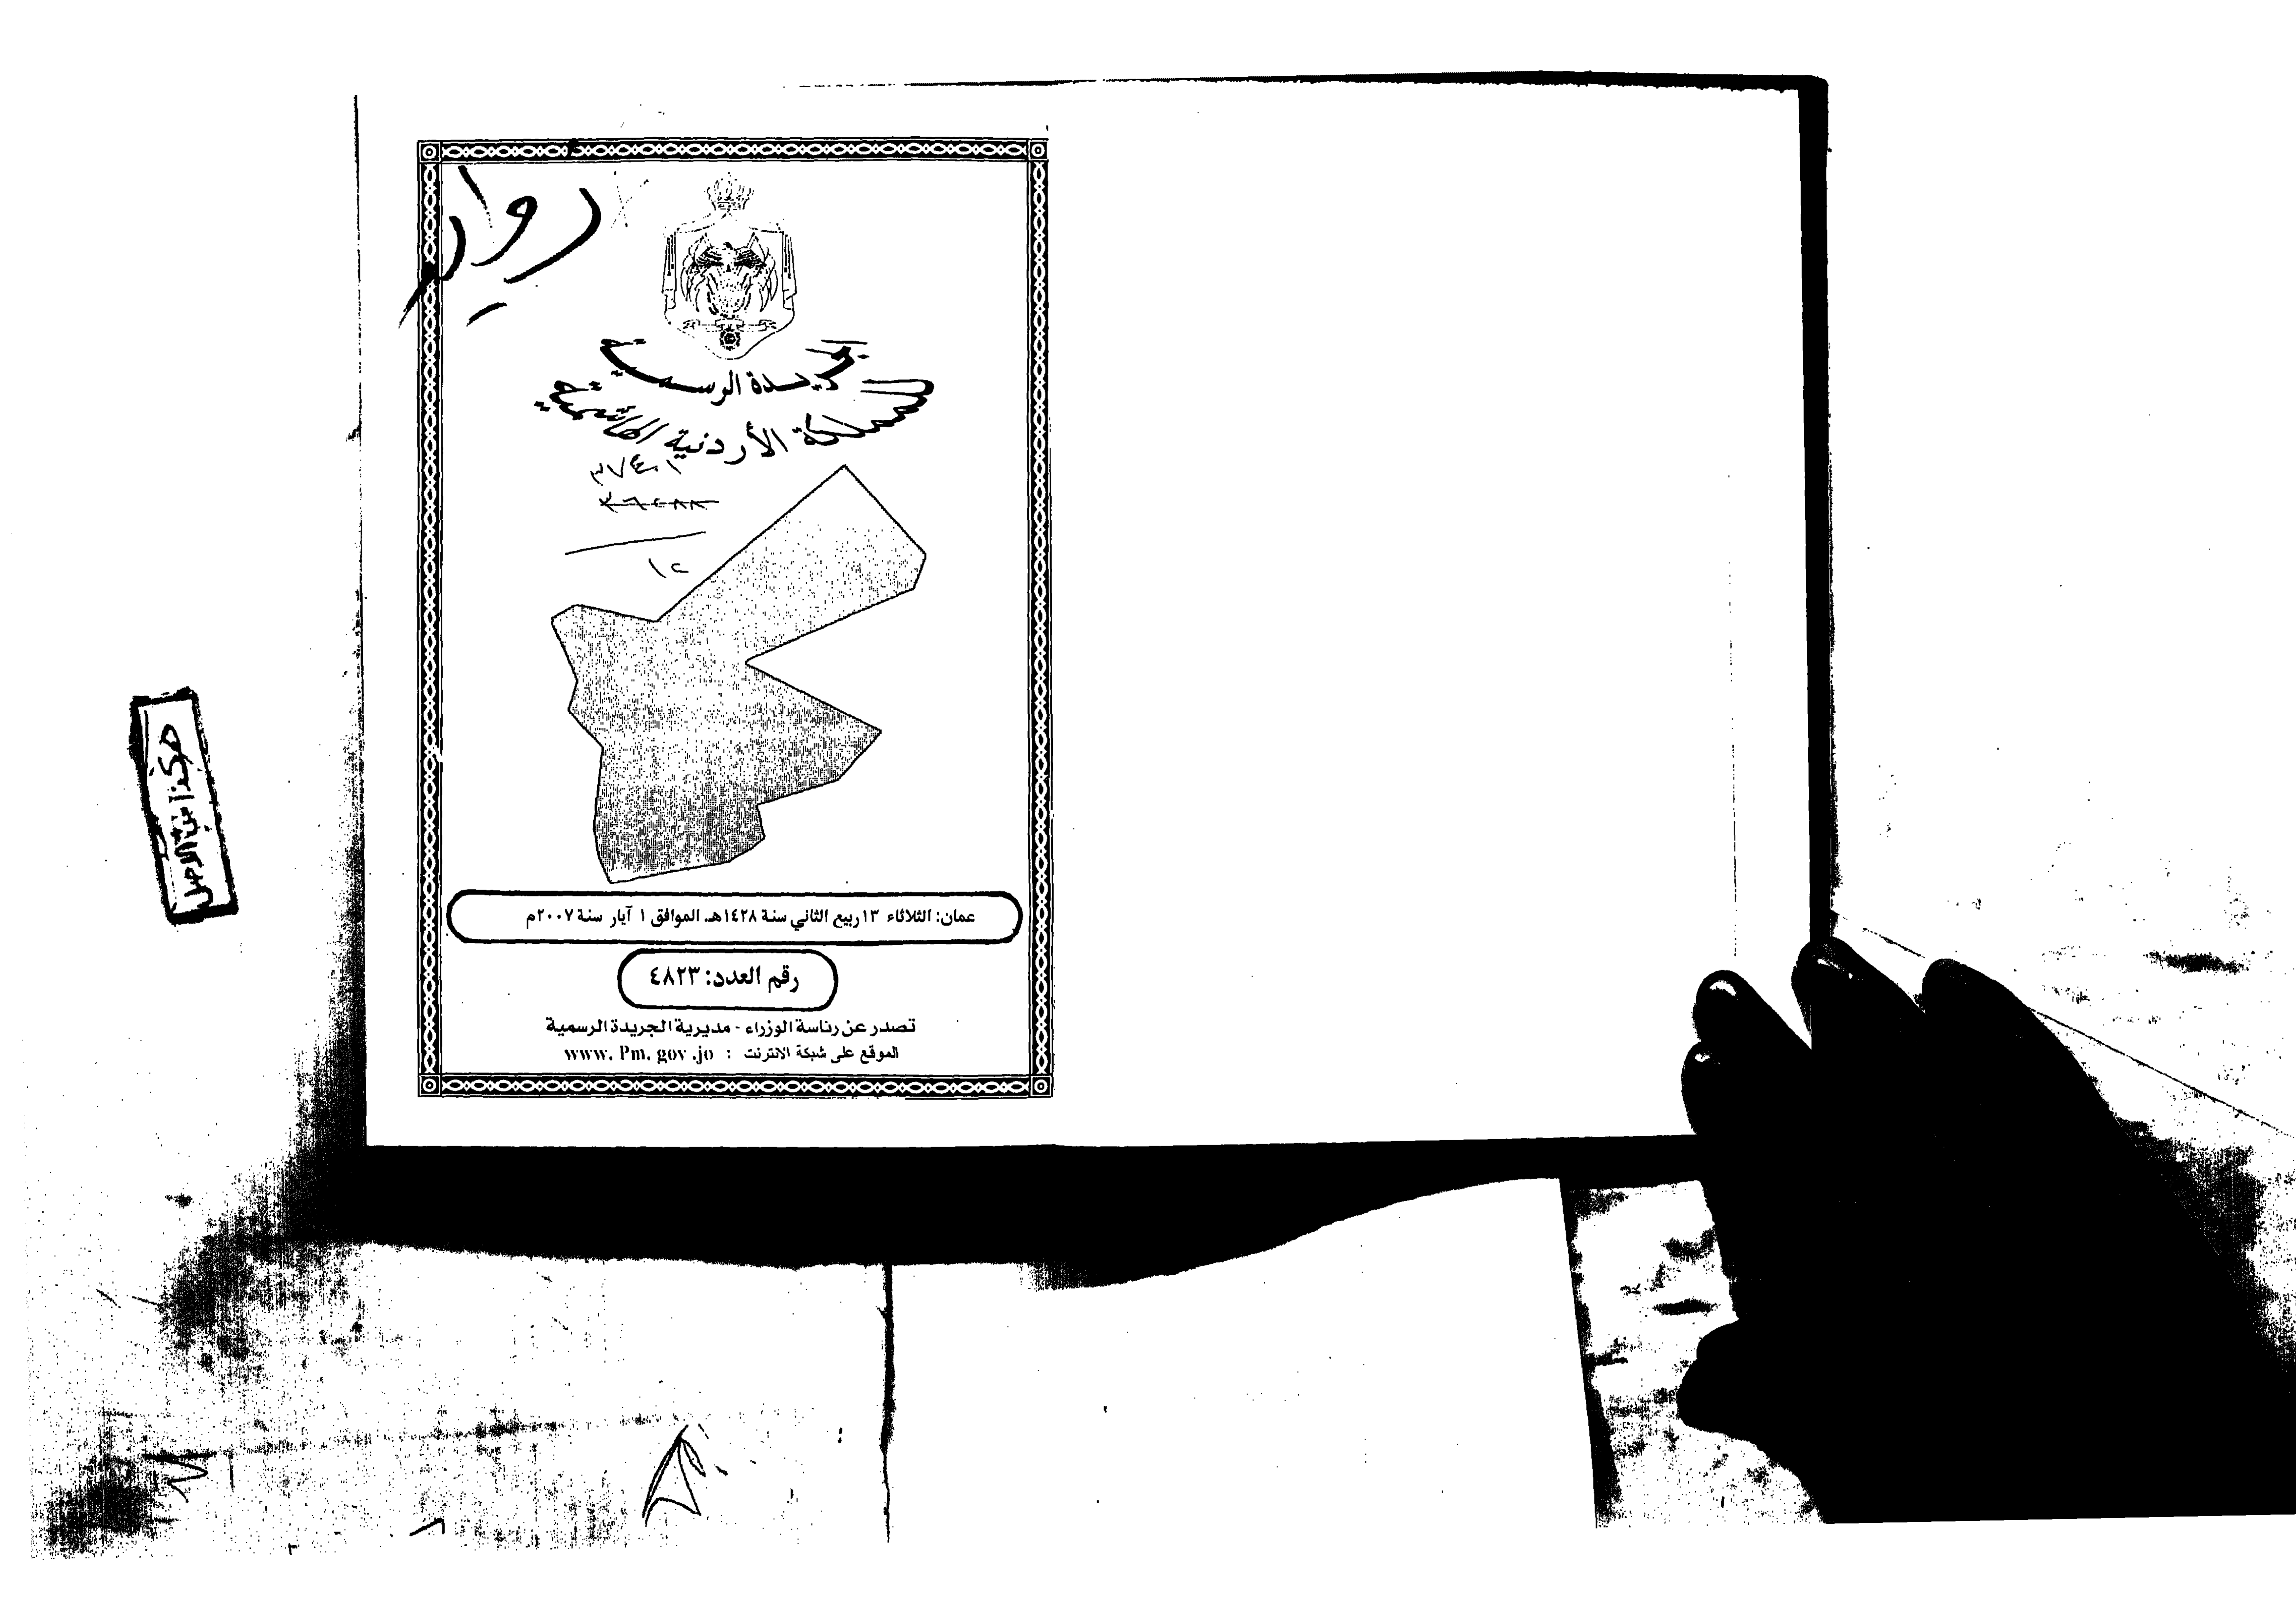 الجريدة الرسمية
للمملكة الأردنية الهاشمية
٣٧٤٠١
١٢
عمان: الثلاثاء ١٣ ربيع الثاني سنة ١٤٢٨هـ. الموافق ١ آيار سنة ٢٠٠٧م
رقم العدد: ٤٨٢٣
تصدر عن رئاسة الوزراء - مديرية الجريدة الرسمية
الموقع على شبكة الانترنت : www. Pm. gov .jo
هكذا في الاصل